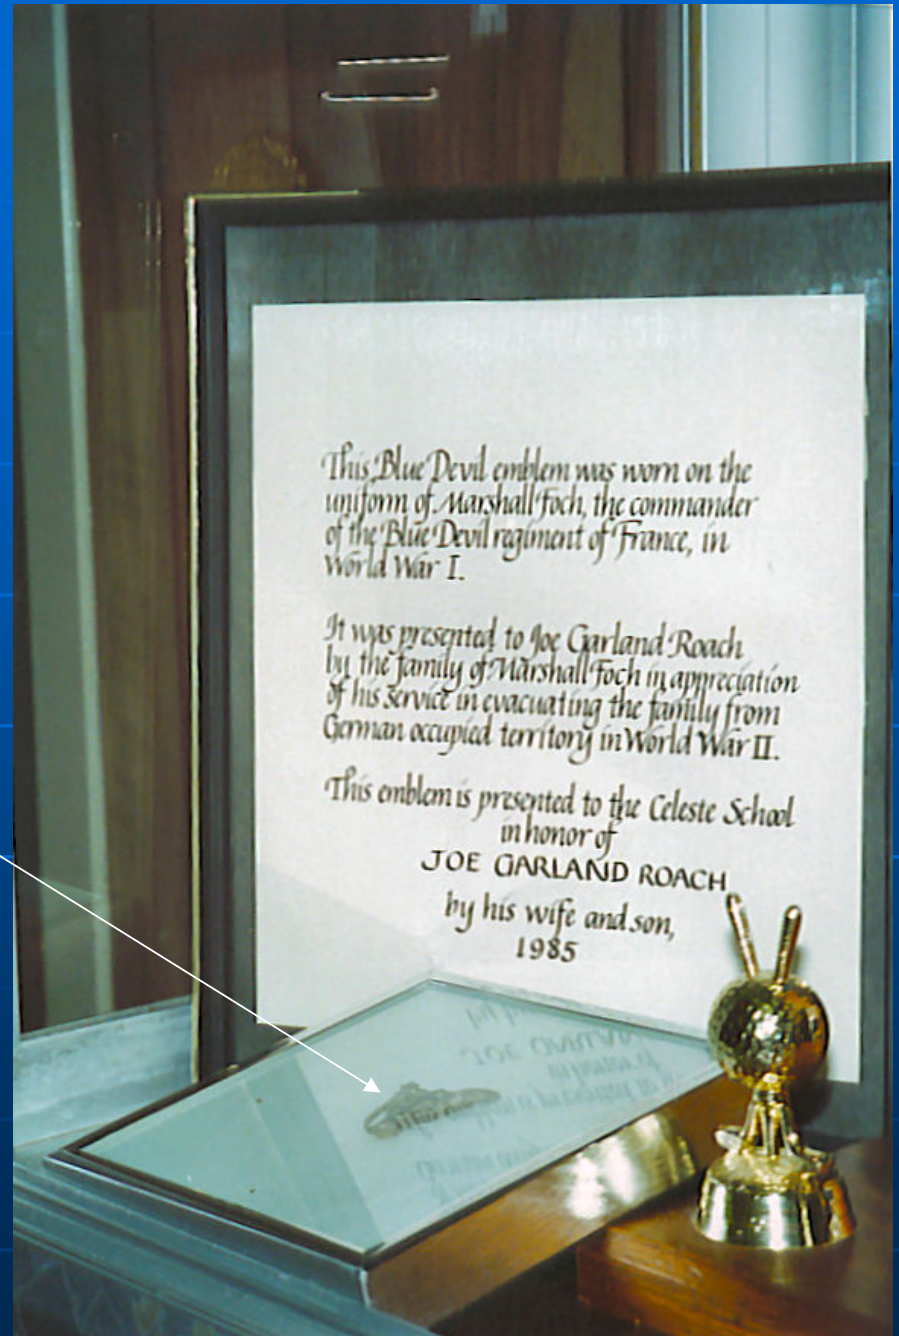 This Blue Devil emblem was worn on the
uniform of Marshall Foch, the commander
of the Blue Devil regiment of France, in
World War I.
It was presented to Joe Garland Roach
by the family of Marshall Foch in appreciation
of his service in evacuating the family from
German occupied territory in World War II.
This emblem is presented to the Celeste School
in honor of
JOE GARLAND ROACH
by his wife and son,
1985